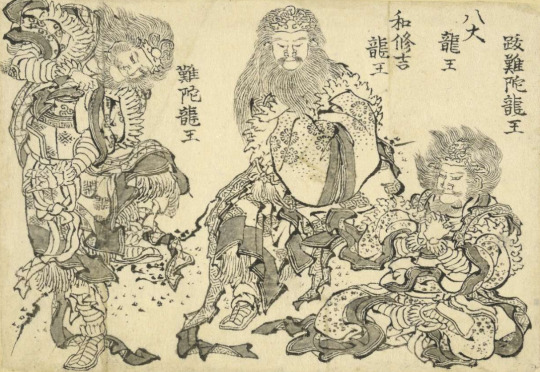 跋難陀龍王
八大
龍王
和修吉
龍王
難陀龍王